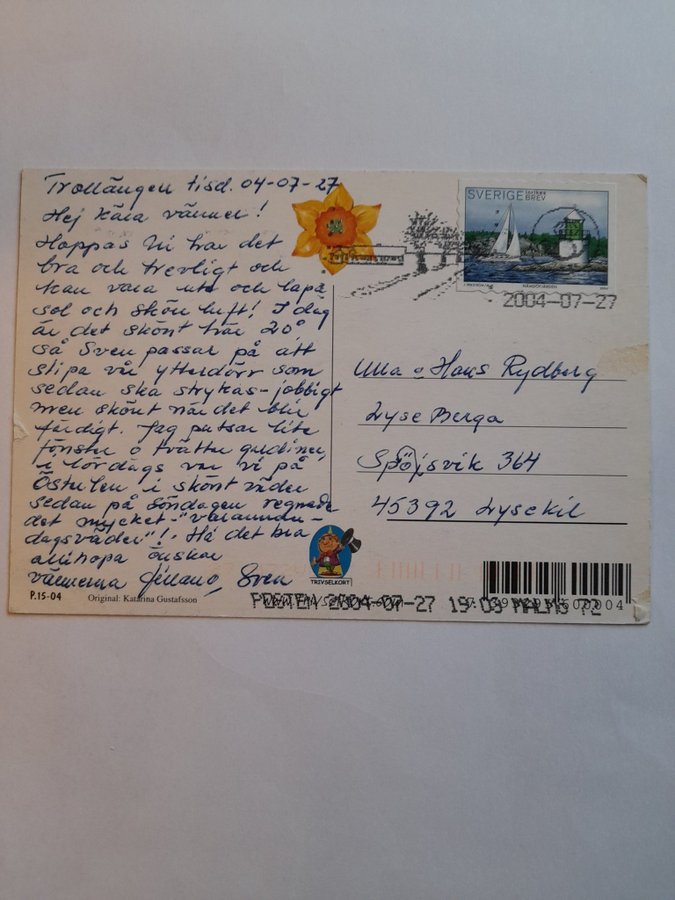 Trollängen tisd. 04-07-27
Hej kära vänner!
Hoppas Ni har det
bra och trevligt och
kan vara ute och lapa
sol och skön luft! I dag
är det skönt här 20°
så Sven passar på att
slipa vår ytterdörr som
sedan ska strykas - jobbigt
men skönt när det blir
färdigt. Jag putsar lite
fönster o tvättar gardiner,
i lördags var vi på
i skönt väder
sedan på söndagen regnade
det mycket - "varannan-
dagsväder"! Ha det bra
allihopa önskar
vännerna Sven
P.15-04
Original: Katarina Gustafsson
TRIVSELKORT
SVERIGE
BREV
2004-07-27
Ulla o Hans Rydberg
Lyse Berga
Spöjsvik 364
45392 Lysekil
POSTEN 2004-07-27 19:03 MALMÖ 72